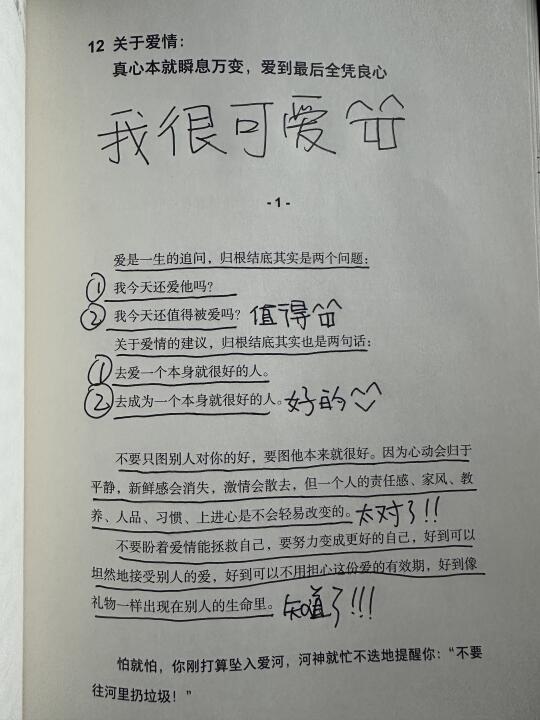 12 关于爱情：
真心本就瞬息万变，爱到最后全凭良心
我很可爱
- 1 -
爱是一生的追问，归根结底其实是两个问题：
① 我今天还爱他吗？
② 我今天还值得被爱吗？ 值得
关于爱情的建议，归根结底其实也是两句话：
① 去爱一个本身就很好的人。
② 去成为一个本身就很好的人。好的
不要只图别人对你的好，要图他本来就很好。因为心动会归于
平静，新鲜感会消失，激情会散去，但一个人的责任感、家风、教
养、人品、习惯、上进心是不会轻易改变的。太对了!!
不要盼着爱情能拯救自己，要努力变成更好的自己，好到可以
坦然地接受别人的爱，好到可以不用担心这份爱的有效期，好到像
礼物一样出现在别人的生命里。知道了!!!
怕就怕，你刚打算坠入爱河，河神就忙不迭地提醒你：“不要
往河里扔垃圾！”